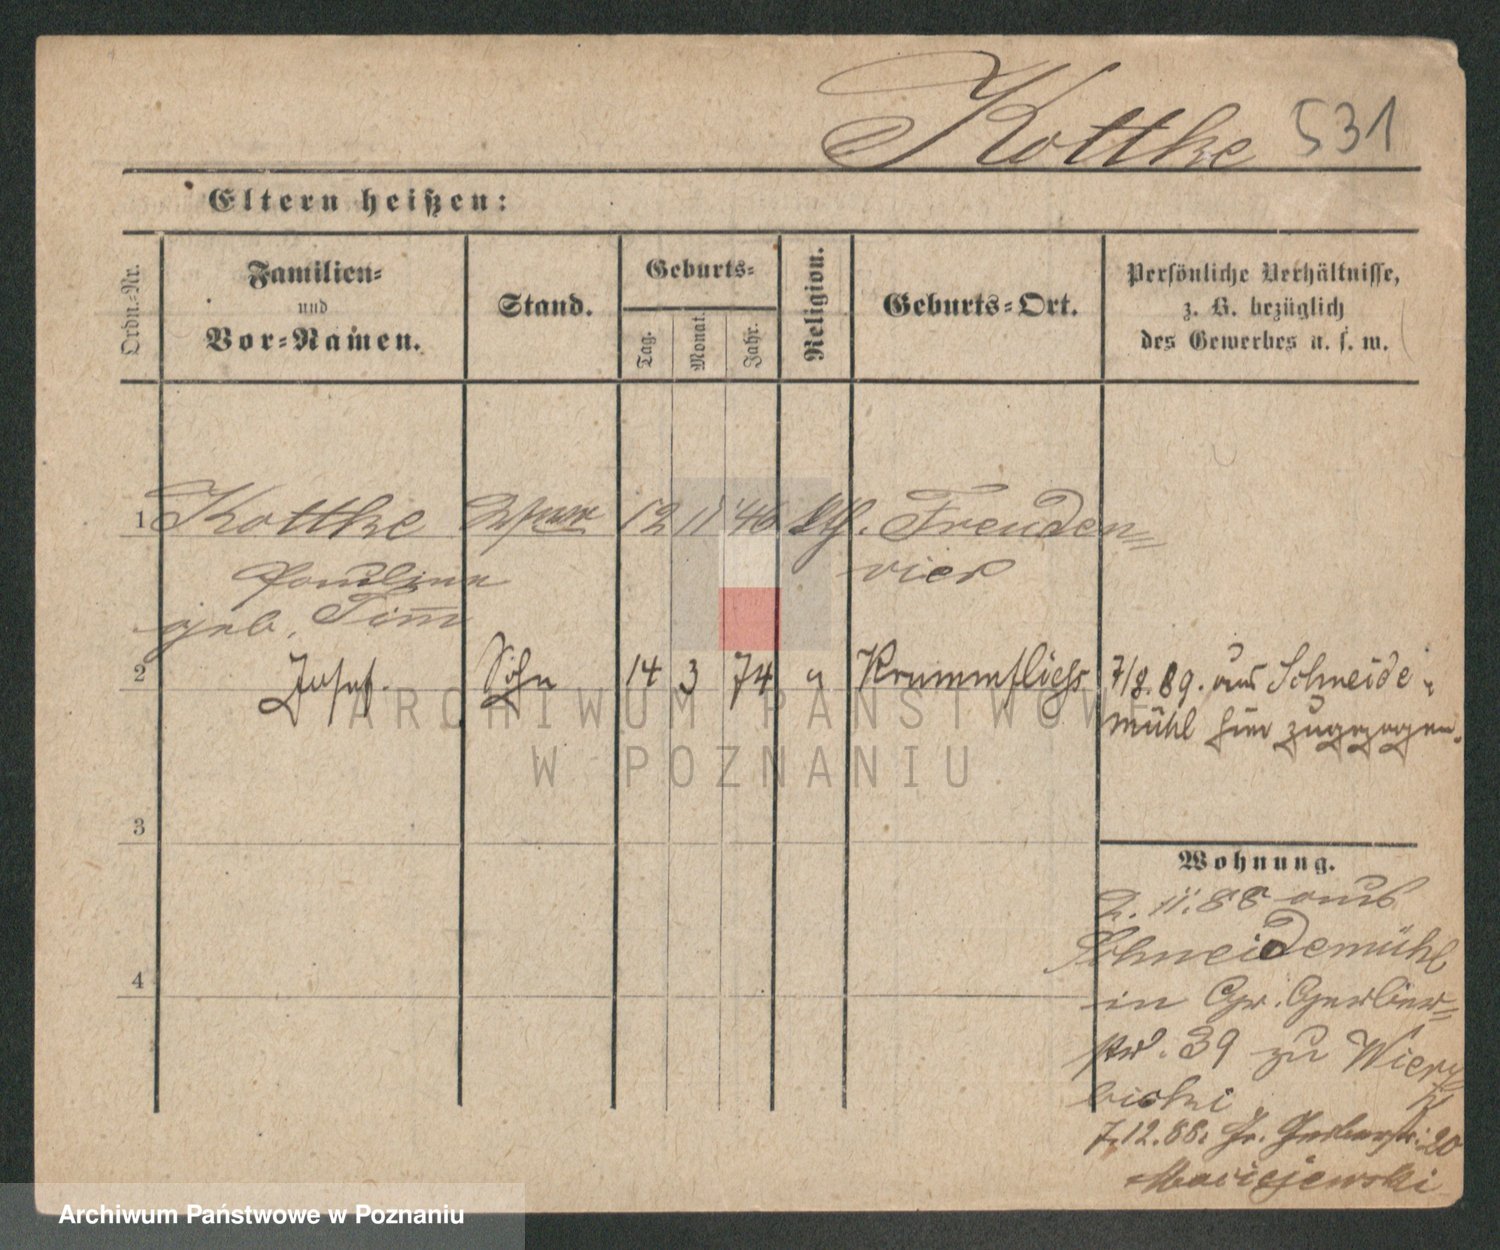 Kottke 531
Eltern heißen:
Ordn.-Nr.
Familien-
und
Vor-Namen.
Stand.
Geburts-
Tag.
Monat.
Jahr.
Religion.
Geburts-Ort.
Persönliche Verhältnisse,
z. B. bezüglich
des Gewerbes u. s. w.
1 Kottke 12 11 46 Freuden=
Pauline vier
geb. Tim̅
2 Josef. Sohn 14 3 74 Krummfliess 7/8.89. aus Schneide-
mühl hier zugezogen.
3
Wohnung.
2.11.88 aus
Schneidemühl
4
in Gr. Gerber=
str. 39 zu Wierz
bicki
7.12.88. Gr. Gerberstr. 20
Maciejewski
ARCHIWUM PAŃSTWOWE
W POZNANIU
Archiwum Państwowe w Poznaniu